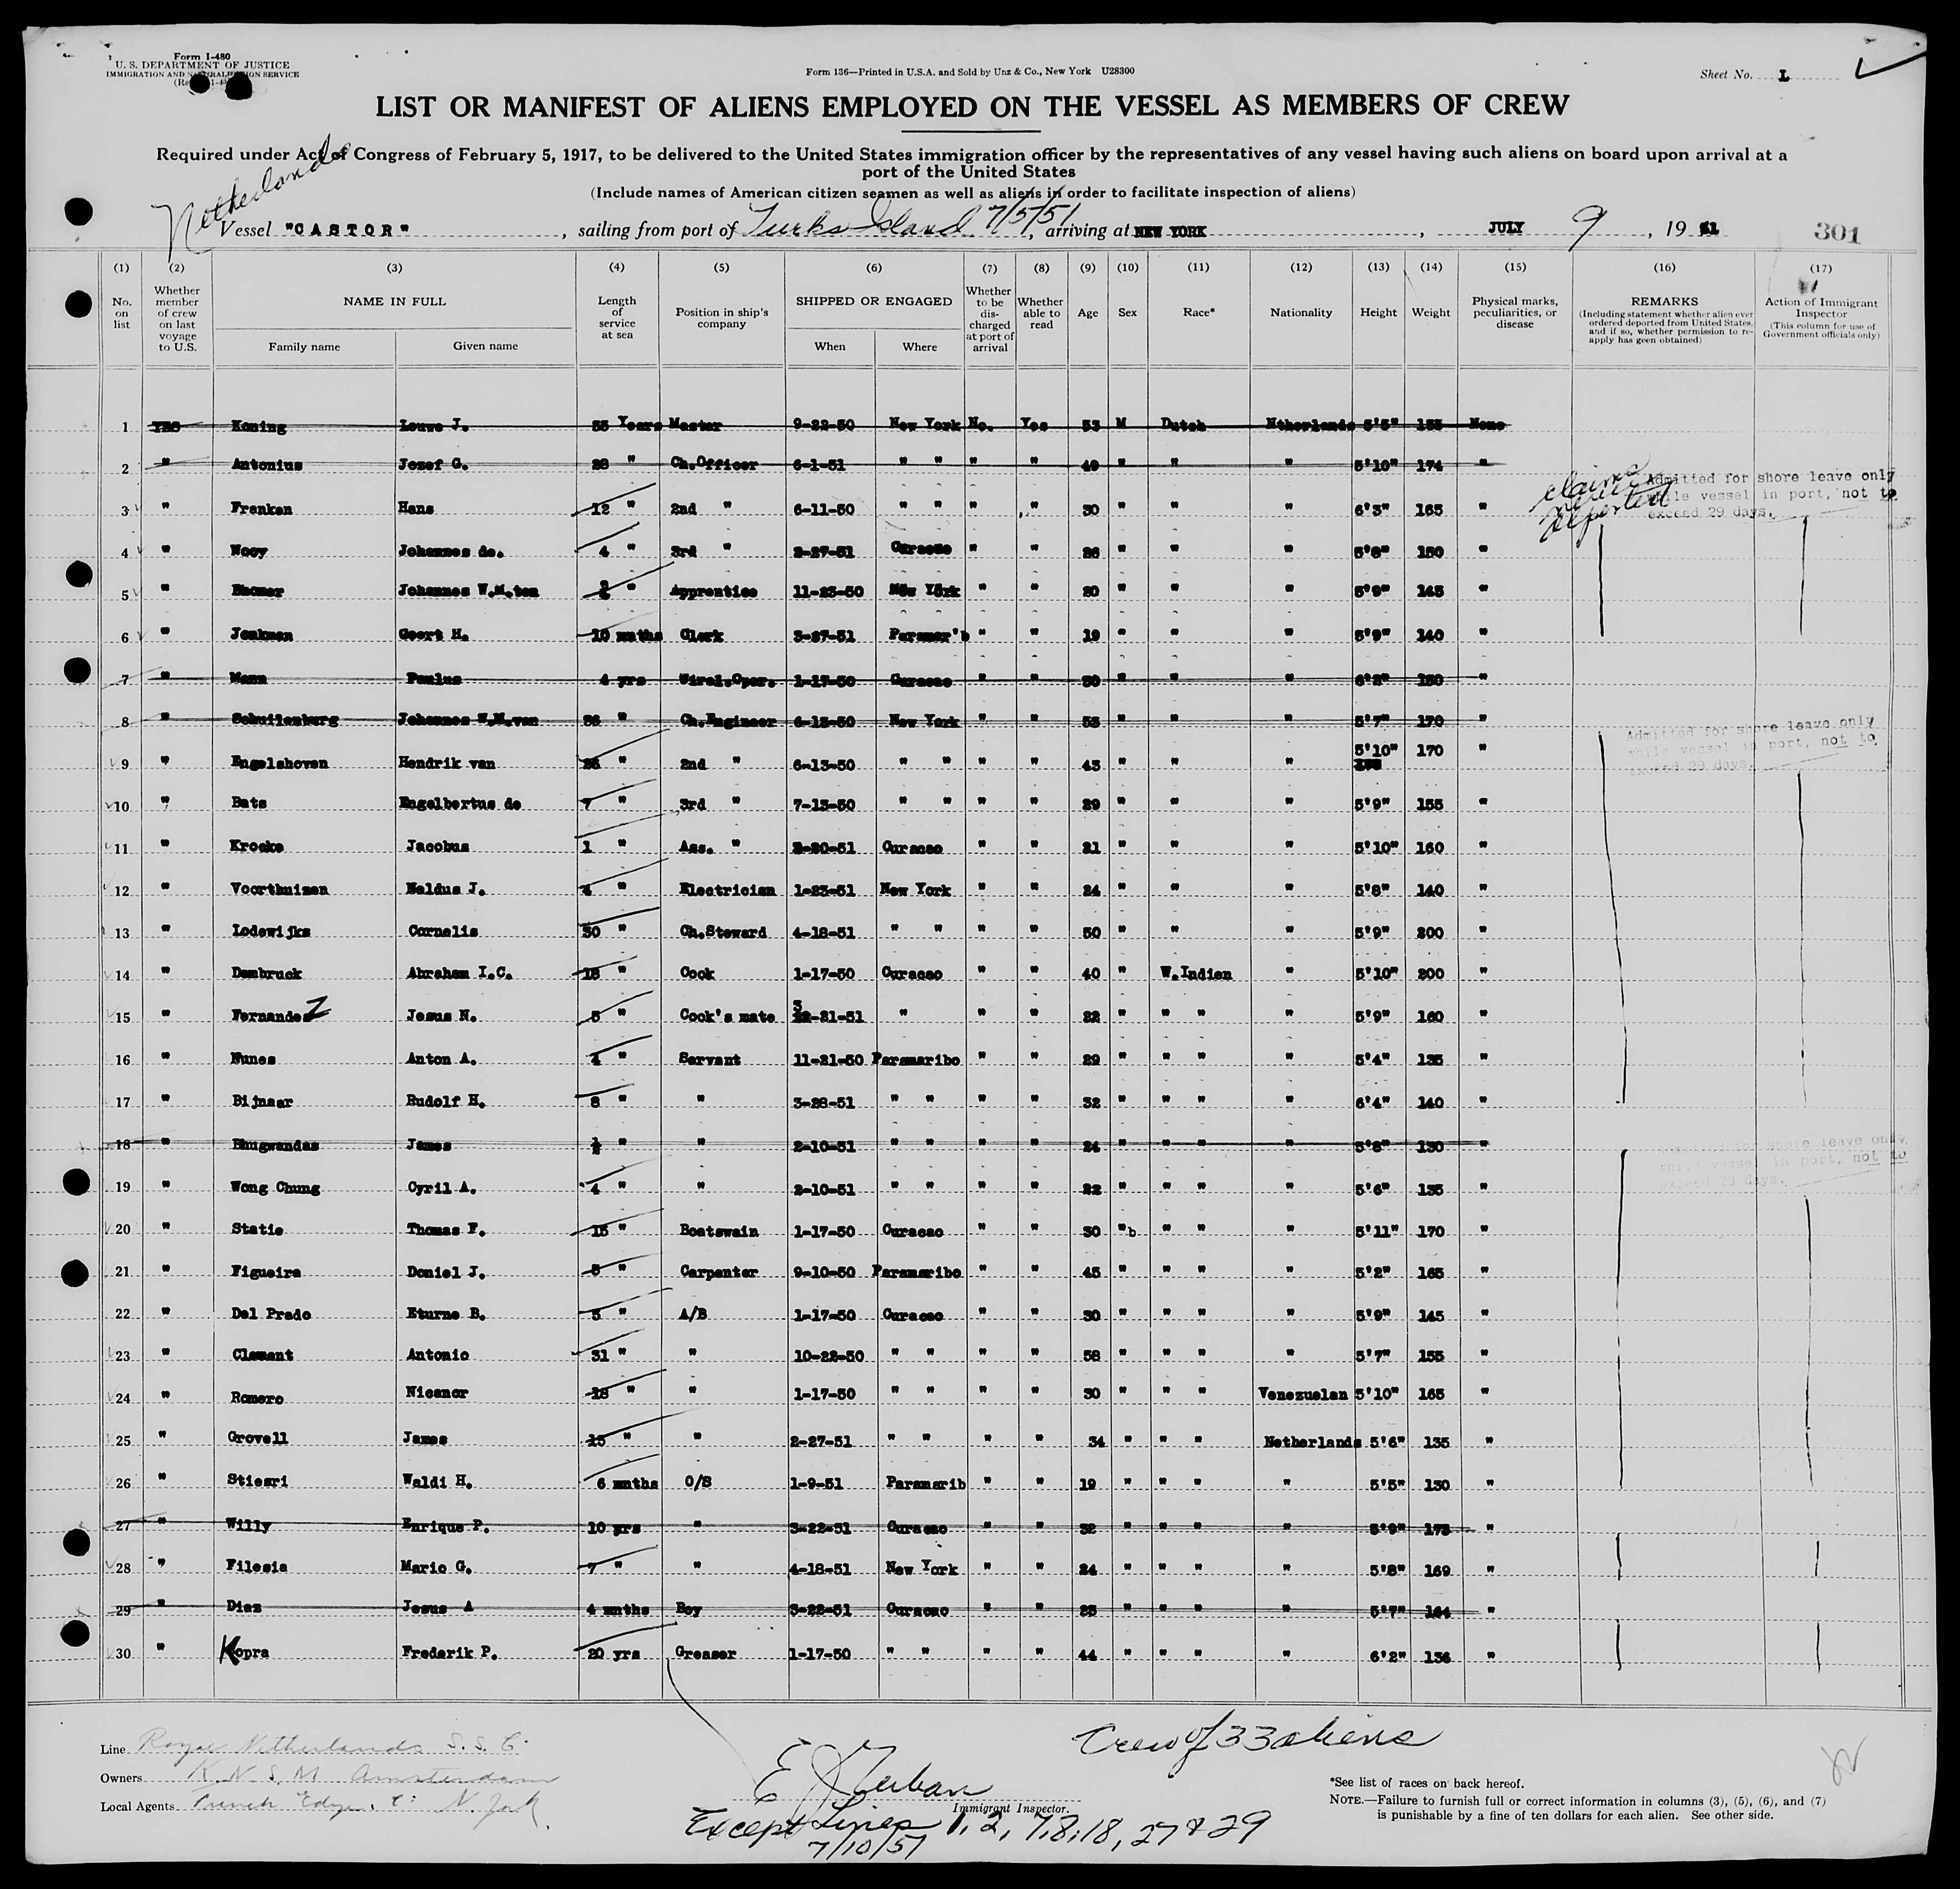 Form I-480
U. S. DEPARTMENT OF JUSTICE
IMMIGRATION AND NATURALIZATION SERVICE
Form 136—Printed in U.S.A. and Sold by Unz & Co., New York U28300
Sheet No. 1
LIST OR MANIFEST OF ALIENS EMPLOYED ON THE VESSEL AS MEMBERS OF CREW
Required under Act of Congress of February 5, 1917, to be delivered to the United States immigration officer by the representatives of any vessel having such aliens on board upon arrival at a
port of the United States
(Include names of American citizen seamen as well as aliens in order to facilitate inspection of aliens)
Netherlands
Vessel "CASTOR", sailing from port of Turks Island 7/5/51, arriving at NEW YORK, JULY 9, 1951 301
(1) (2) (3) (4) (5) (6) (7) (8) (9) (10) (11) (12) (13) (14) (15) (16) (17)
No. on list
Whether member of crew on last voyage to U.S.
NAME IN FULL
Family name Given name
Length of service at sea
Position in ship's company
SHIPPED OR ENGAGED
When Where
Whether to be discharged at port of arrival
Whether able to read
Age Sex Race* Nationality Height Weight
Physical marks, peculiarities, or disease
REMARKS
(Including statement whether alien ever ordered deported from United States, and if so, whether permission to re-apply has geen obtained)
Action of Immigrant Inspector
(This column for use of Government officials only)
1 YES Koning Louwe J. 35 Years Master 9-22-50 New York No. Yes 53 M Dutch Ntherlands 5'5" 155 None
2 " Antonius Jozef G. 28 " Ch.Officer 6-1-51 " " " " 49 " " " 5'10" 174 "
3 " Franken Hans 12 " 2nd " 6-11-50 " " " " 30 " " " 6'3" 165 "
claims never deported
Admitted for shore leave only
while vessel in port, not to
exceed 29 days.
4 " Nooy Johannes de. 4 " 3rd " 2-27-51 Curacao " " 26 " " " 5'8" 150 "
5 " Johannes W.M.ten " Apprentice 11-23-50 New York " " 20 " " " 5'9" 145 "
6 " Jonkman Geert H. 10 mnths Clerk 3-27-51 Paramar'b " " 19 " " " 5'9" 140 "
7 " Mann Paulus 4 yrs Wirel.Oper. 1-17-50 Curacao " " 30 " " " 6'2" 150 "
8 " Schuilenburg Johannes W.M.van 36 " Ch.Engineer 6-13-50 New York " " 53 " " " 5'7" 170 "
9 " Engelshoven Hendrik van 26 " 2nd " 6-13-50 " " " " 43 " " " 5'10" 170 "
Admitted for shore leave only
while vessel in port, not to
exceed 29 days.
10 " Bats Engelbertus de 7 " 3rd " 7-13-50 " " " " 29 " " " 5'9" 155 "
11 " Kroeke Jacobus 1 " Ass. " 2-20-51 Curacao " " 21 " " " 5'10" 160 "
12 " Voorthuizen Naldus J. 4 " Electrician 1-23-51 New York " " 24 " " " 5'8" 140 "
13 " Lodewijks Cornelis 30 " Ch.Steward 4-18-51 " " " " 50 " " " 5'9" 200 "
14 " Dambruck Abraham I.C. 18 " Cook 1-17-50 Curacao " " 40 " W.Indian " 5'10" 200 "
15 " Fernandez Jesus N. 5 " Cook's mate 3-21-51 " " " 22 " " " " 5'9" 160 "
16 " Nunes Anton A. 4 " Servant 11-21-50 Paramaribo " " 29 " " " " 5'4" 135 "
17 " Bijnaar Rudolf H. 8 " " 3-28-51 " " " " 32 " " " " 6'4" 140 "
18 " Bhugwandas James ½ " " 2-10-51 " " 24 " " " " 5'8" 130 "
19 " Wong Chung Cyril A. 4 " " 2-10-51 " " " " 22 " " " " 5'6" 135 "
Admitted for shore leave only
while vessel in port, not to
exceed 29 days.
20 " Statie Thomas F. 15 " Boatswain 1-17-50 Curacao " " 30 "b " " " 5'11" 170 "
21 " Figueira Doniel J. 5 " Carpenter 9-10-50 Paramaribo " " 45 " " " " 5'2" 165 "
22 " Del Prado Eturne B. 5 " A/B 1-17-50 Curacao " " 30 " " " " 5'9" 145 "
23 " Clement Antonio 31 " " 10-22-50 " " " " 58 " " " " 5'7" 155 "
24 " Romero Nicanor 18 " " 1-17-50 " " " " 30 " " " Venezuelan 5'10" 165 "
25 " Grovell James 15 " " 2-27-51 " " " " 34 " " " Netherlands 5'6" 135 "
26 " Stiesri Waldi H. 6 mnths O/S 1-9-51 Paramarib " " 19 " " " " 5'5" 130 "
27 " Willy Enrique P. 10 yrs " 3-22-51 Curacao " " 32 " " " " 5'9" 173 "
28 " Filesia Mario G. 7 " " 4-18-51 New York " " 24 " " " " 5'8" 169 "
29 " Diaz Jesus A 4 mnths Boy 3-22-51 Curacao " " 23 " " " " 5'7" 164 "
30 " Kopra Frederik P. 20 yrs Greaser 1-17-50 " " " " 44 " " " " 6'2" 136 "
Line Royal Netherlands S.S. C.
Owners K.N.S.M Amsterdam
Local Agents N. York
Crew of 33 aliens
Immigrant Inspector.
Except Lines 1, 2, 7, 8, 18, 27 & 29
7/10/51
*See list of races on back hereof.
NOTE.—Failure to furnish full or correct information in columns (3), (5), (6), and (7)
is punishable by a fine of ten dollars for each alien. See other side.